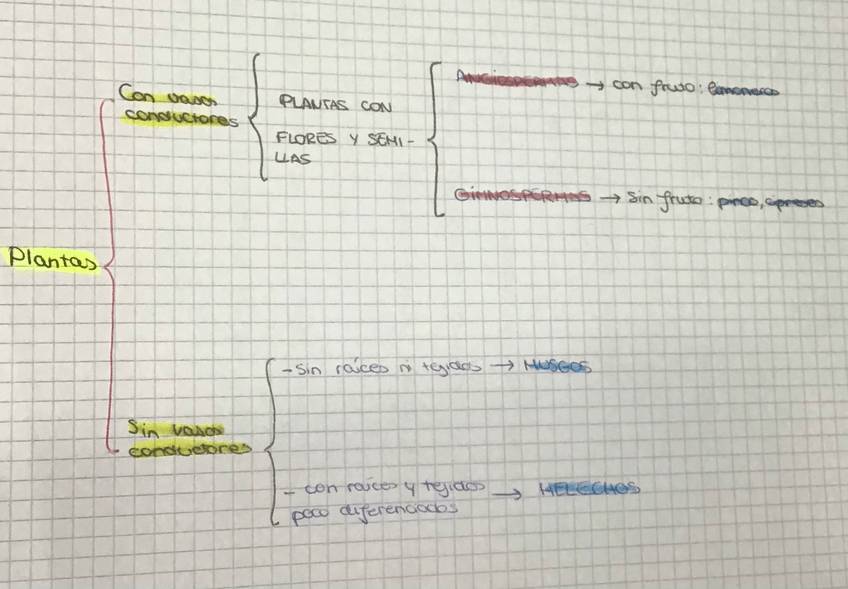 Con vasos
conductores
PLANTAS CON
FLORES Y SEMI-
LLAS
ANGIOSPERMAS → con fruto: limoneros
GIMNOSPERMAS → Sin fruto: pinos, cipreses
Plantas
- Sin raíces ni tejidos → MUSGOS
Sin vasos
conductores
- con raíces y tejidos → HELECHOS
poco diferenciados